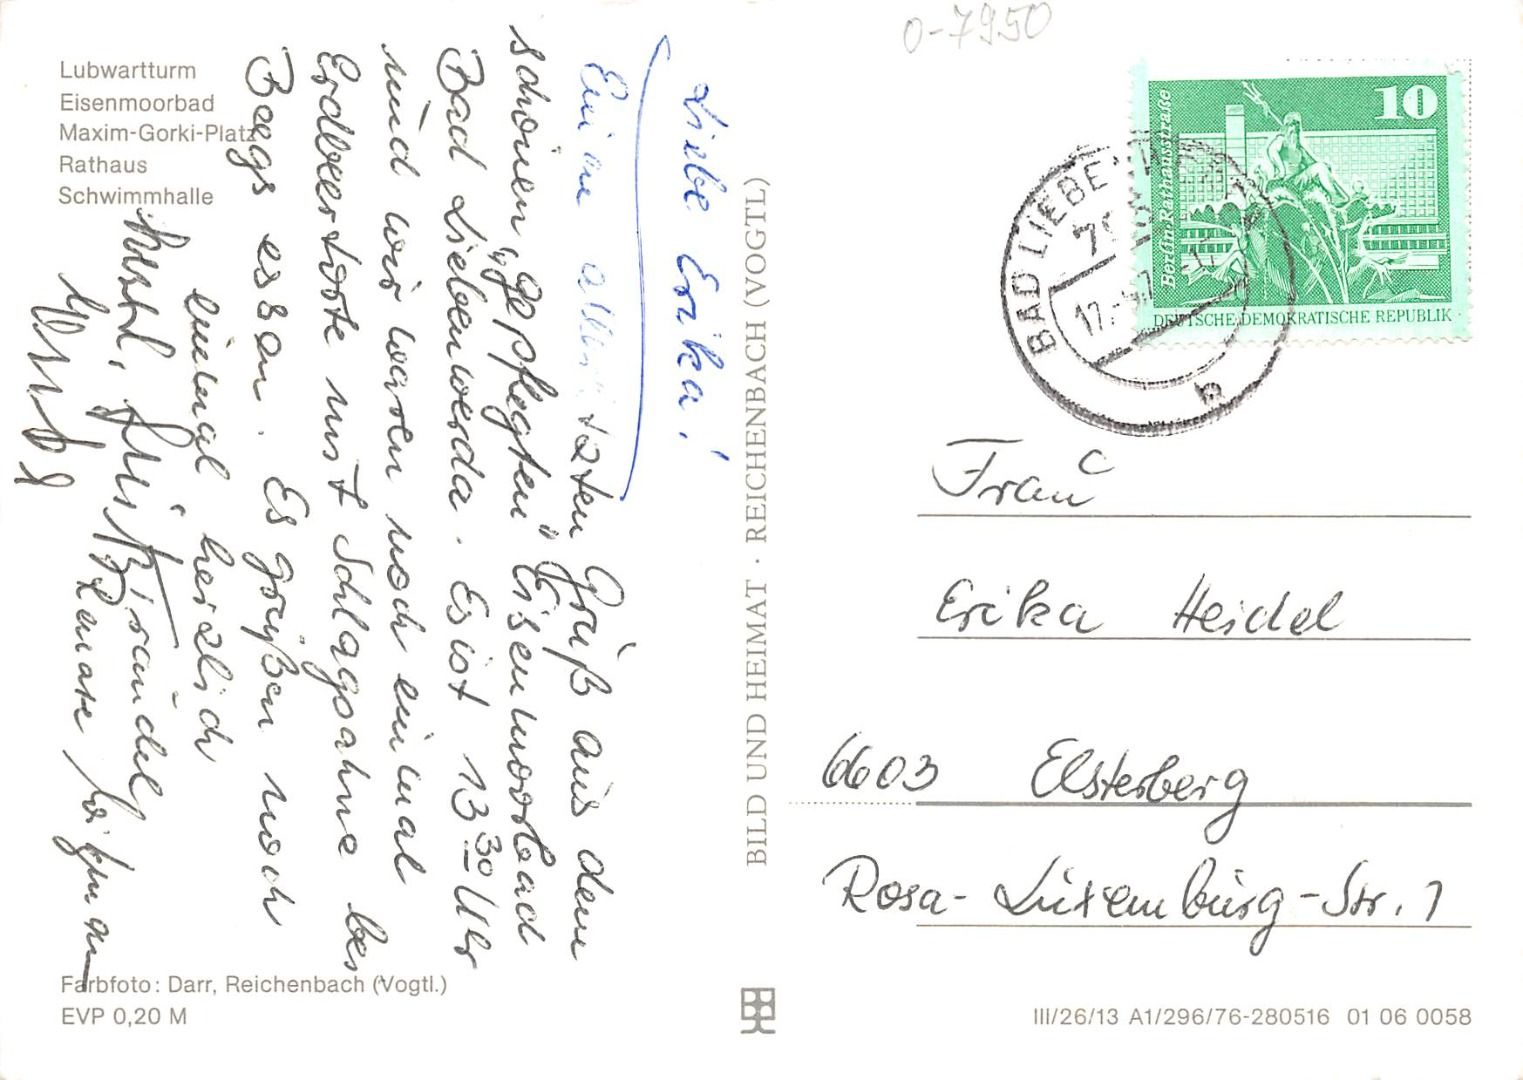 0-7950
Lubwartturm
Eisenmoorbad
Maxim-Gorki-Platz
Rathaus
Schwimmhalle
Liebe Erika!
Einen allerletzten Gruß aus dem
schönen, "gepflegten" Eisenmoorbad
Bad Liebenwerda. Es ist 13³⁰ Uhr
und wir waren noch einmal
Erdbeertorte mit Schlagsahne bei
Baegs essen. Es grüßen noch
einmal herzlich
Fritz, Traudel
Renate
Farbfoto: Darr, Reichenbach (Vogtl.)
EVP 0,20 M
BILD UND HEIMAT · REICHENBACH (VOGTL)
10
Berlin-Rathausstraße
DEUTSCHE DEMOKRATISCHE REPUBLIK
BAD LIEBENWERDA
17.
b
Frau
Erika Heidel
6603 Elsterberg
Rosa-Luxemburg-Str. 1
III/26/13 A1/296/76-280516 01 06 0058